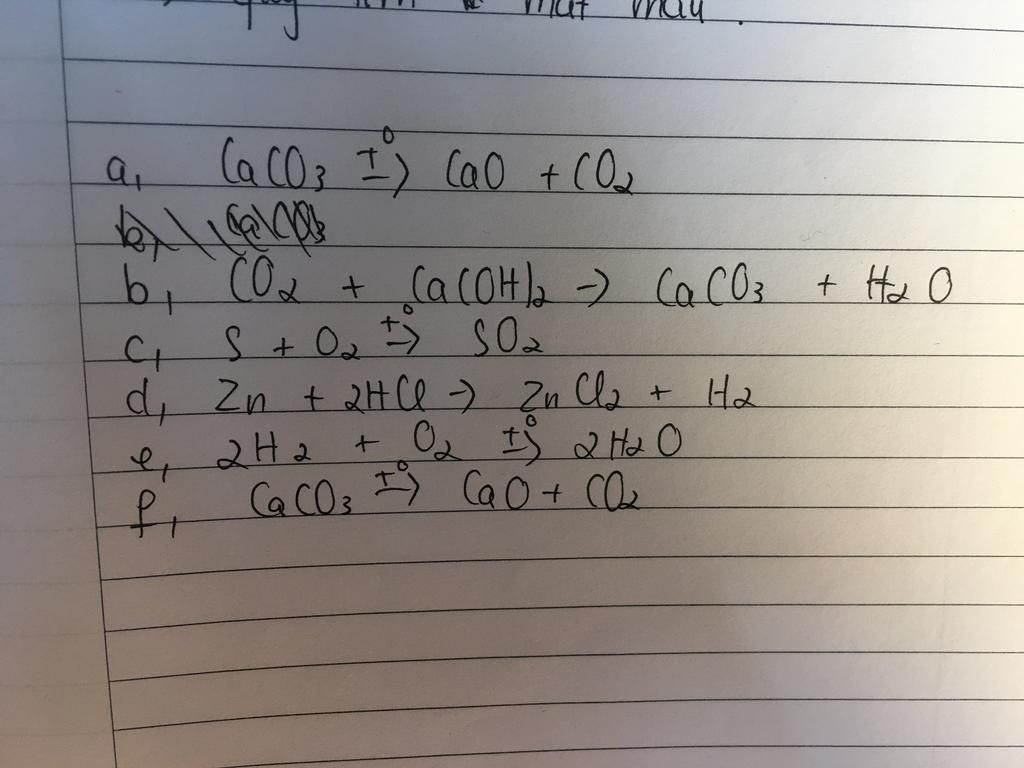 mất màu.
a, CaCO3 t°→ CaO + CO2
b, CO2 + Ca(OH)2 → CaCO3 + H2O
c, S + O2 t°→ SO2
d, Zn + 2HCl → ZnCl2 + H2
e, 2H2 + O2 t°→ 2H2O
f, CaCO3 t°→ CaO + CO2